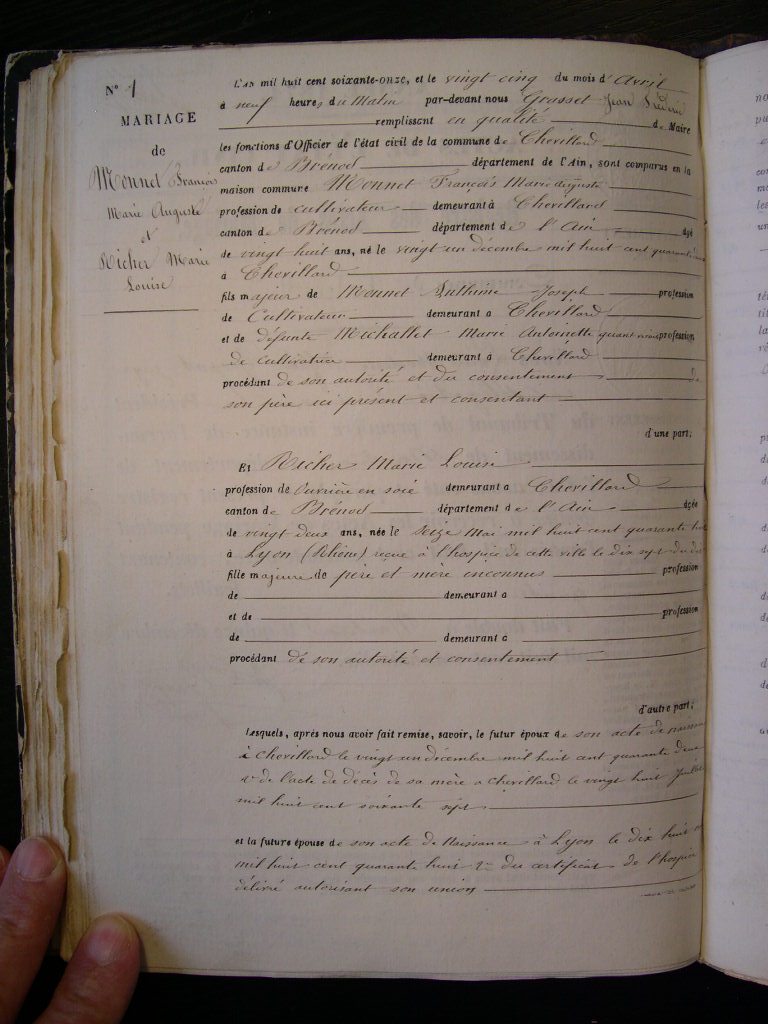 N° 1
MARIAGE
de
Monnet François
Marie Auguste
et
Richer Marie
Louise
L'an mil huit cent soixante-onze, et le vingt cinq du mois d'Avril
à neuf heures du Matin par-devant nous Grosset Jean Frédéric
remplissant en qualité de Maire
les fonctions d'Officier de l'état civil de la commune de Chevillard
canton de Brénod département de l'Ain, sont comparus en la
maison commune Monnet François Marie Auguste
profession de cultivateur demeurant à Chevillard
canton de Brénod département de l'Ain âgé
de vingt huit ans, né le vingt un décembre mil huit cent quarante deux
à Chevillard
fils majeur de Monnet Anthime Joseph profession
de Cultivateur demeurant à Chevillard
et de défunte Michallet Marie Antoinette quant vivait profession
de Cultivatrice demeurant à Chevillard
procédant de son autorité et du consentement de
son père ici présent et consentant
d'une part;
Et Richer Marie Louise
profession de Ouvrière en soie demeurant à Chevillard
canton de Brénod département de l'Ain âgée
de vingt deux ans, née le seize Mai mil huit cent quarante huit
à Lyon (Rhône) reçue à l'hospice de cette ville le dix sept du dit
fille majeure de père et mère inconnus profession
de demeurant à
et de profession
de demeurant à
procédant de son autorité et consentement
d'autre part;
Lesquels, après nous avoir fait remise, savoir, le futur époux de son acte de naissance
à Chevillard le vingt un décembre mil huit cent quarante deux
2° de l'acte de décès de sa mère à Chevillard le vingt huit Juillet
mil huit cent soixante sept
et la future épouse de son acte de Naissance à Lyon le dix huit
mil huit cent quarante huit 2° du certificat de l'hospice
délivré autorisant son union